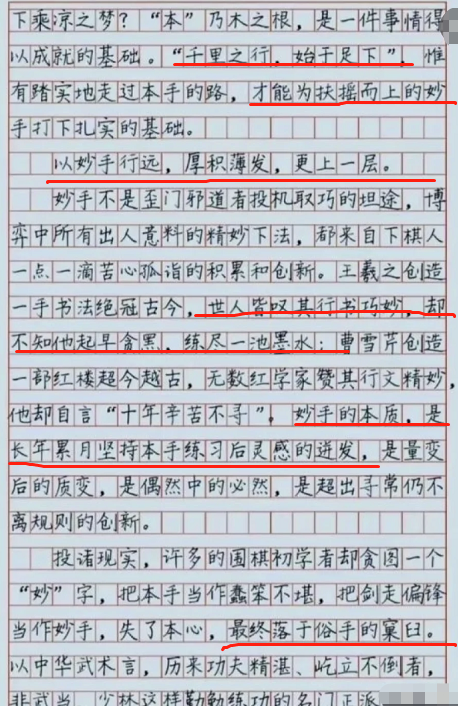 下乘凉之梦？“本”乃木之根，是一件事情得
以成就的基础。“千里之行，始于足下”，惟
有踏实地走过本手的路，才能为扶摇而上的妙
手打下扎实的基础。
以妙手行远，厚积薄发，更上一层。
妙手不是歪门邪道者投机取巧的坦途，博
弈中所有出人意料的精妙下法，都来自下棋人
一点一滴苦心孤诣的积累和创新。王羲之创造
一手书法绝冠古今，世人皆叹其行书巧妙，却
不知他起早贪黑，练尽一池墨水；曹雪芹创造
一部红楼超今越古，无数红学家赞其行文精妙，
他却自言“十年辛苦不寻”，妙手的本质，是
长年累月坚持本手练习后灵感的迸发，是量变
后的质变，是偶然中的必然，是超出寻常仍不
离规则的创新。
投诸现实，许多的围棋初学者却贪图一个
“妙”字，把本手当作蠢笨不堪，把剑走偏锋
当作妙手，失了本心，最终落于俗手的窠臼。
以中华武术言，历来功夫精湛、屹立不倒者，
非武当、少林这样勤勤练功的名门正派